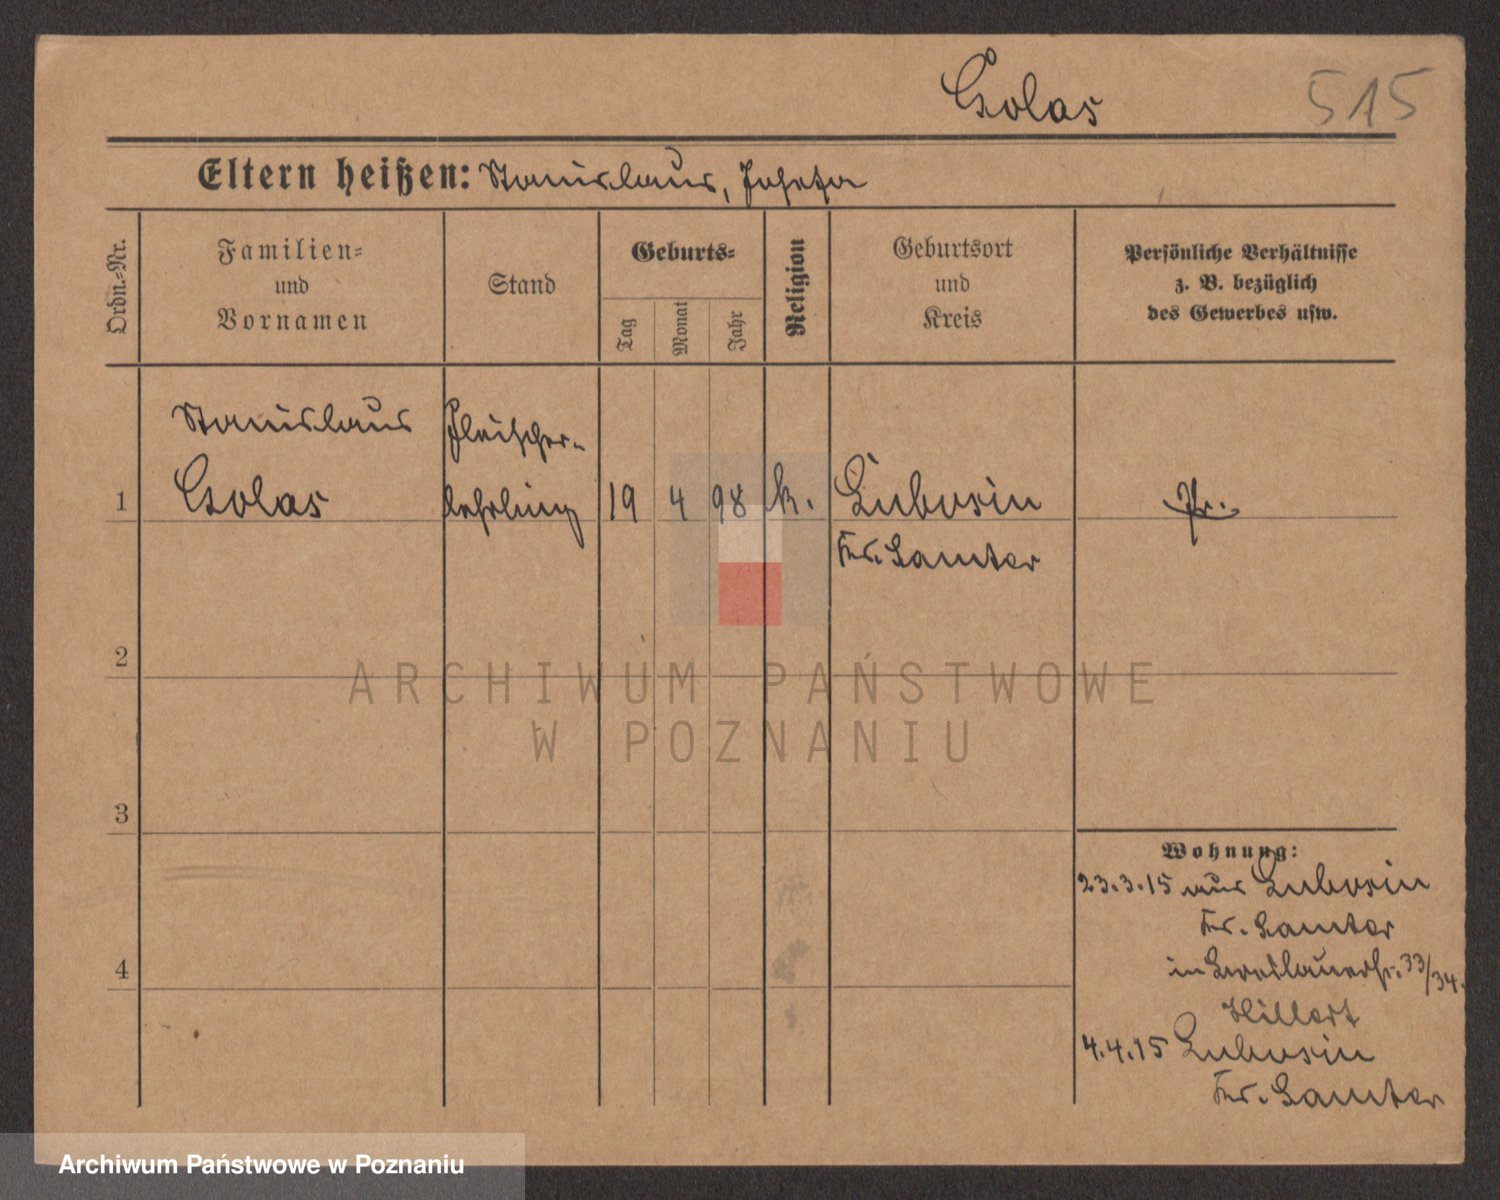 Golas 515
Eltern heißen: Stanislaus, Josefa
Ordn.=Nr.
Familien=
und
Vornamen
Stand
Geburts=
Tag
Monat
Jahr
Religion
Geburtsort
und
Kreis
Persönliche Verhältnisse
z. B. bezüglich
des Gewerbes usw.
Stanislaus
Golas
Fleischer-
lehrling
1
19 4 98 k.
Lubosin
Kr. Samter
Pr.
2
3
4
Wohnung:
23.3.15 aus Lubosin
Kr. Samter
in Breslauerstr. 33/34.
Hillert
4.4.15 Lubosin
Kr. Samter
ARCHIWUM PAŃSTWOWE
W POZNANIU
Archiwum Państwowe w Poznaniu